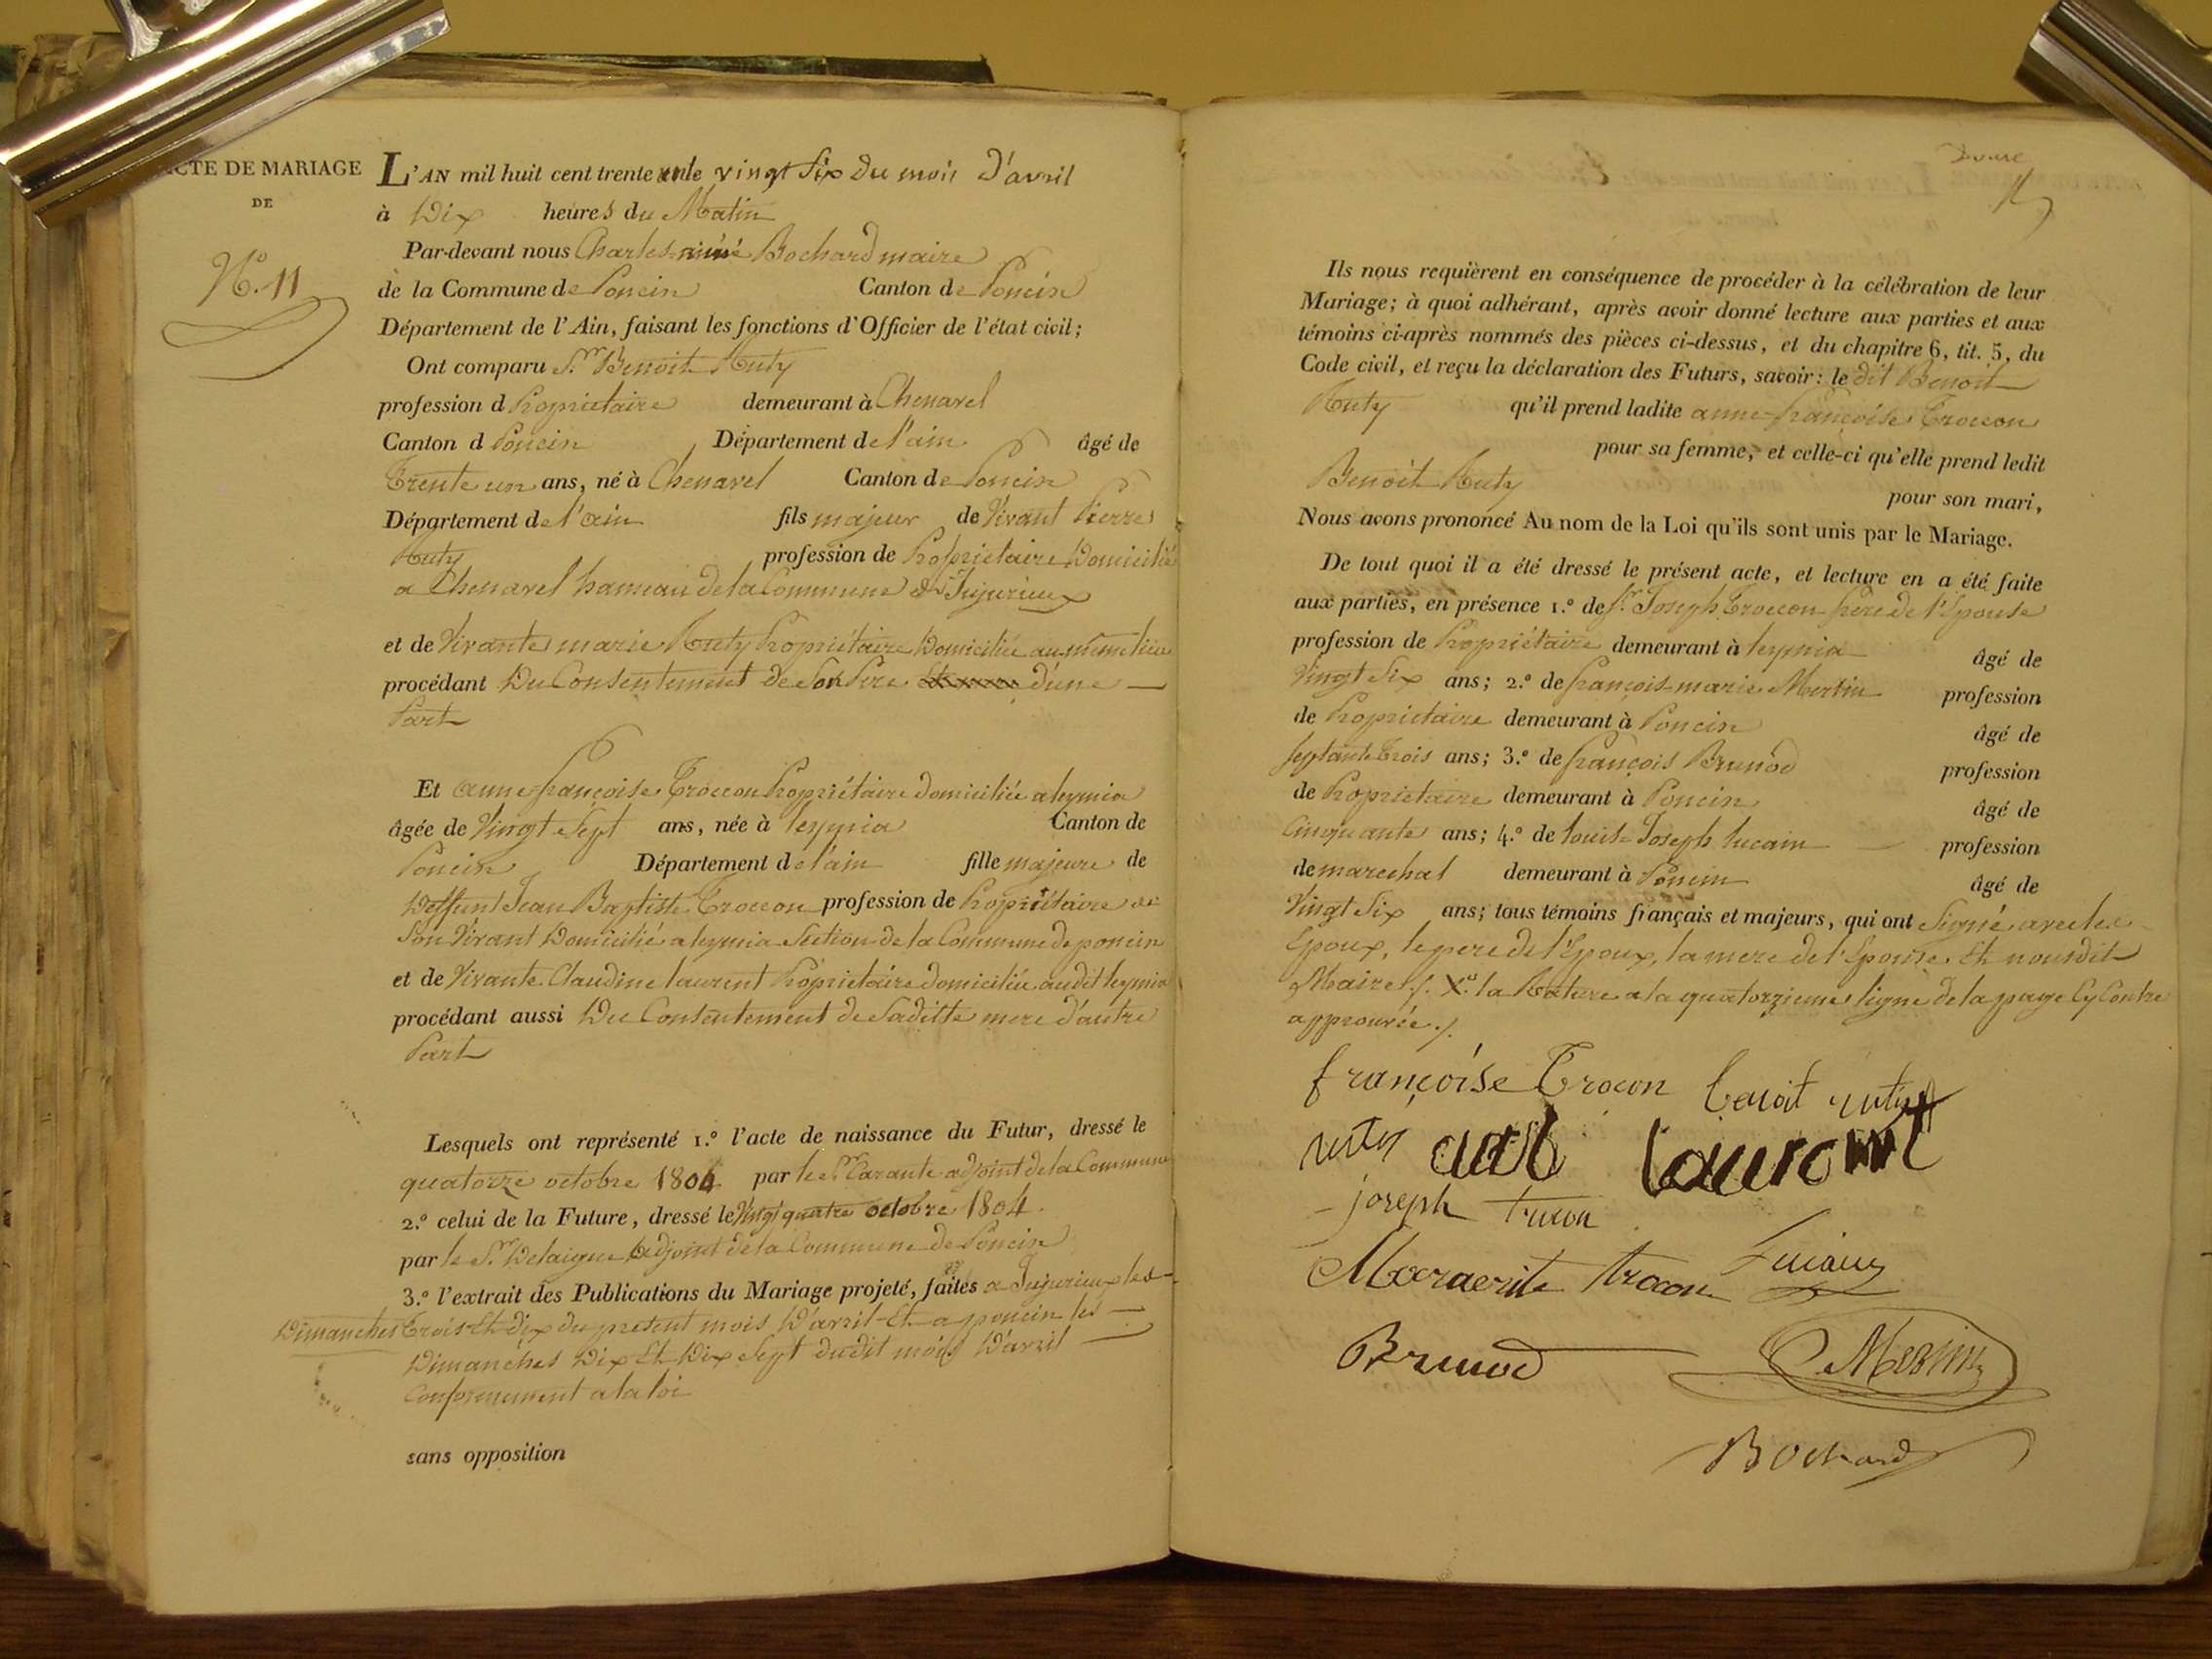 ACTE DE MARIAGE
DE
N.º 11
L'AN mil huit cent trente un le vingt six du mois d'avril
à Dix heures du Matin
Par-devant nous Charles-aimé Bochard maire
de la Commune de Poncin Canton de Poncin
Département de l'Ain, faisant les fonctions d'Officier de l'état civil;
Ont comparu S.r Benoit Ruty
profession d Propriétaire demeurant à Chenavel
Canton d Poncin Département de l'ain âgé de
Trente un ans, né à Chenavel Canton de Poncin
Département de l'ain fils majeur de Vivant Pierre
Ruty profession de Propriétaire Domicilié
a Chenavel hameau de la Commune de Jujurieux
et de Vivante marie Ruty Propriétaire Domiciliée au même lieu
procédant Du Consentement de Son Pere d'une
Part
Et anne françoise Troccon Propriétaire domiciliée a leymia
âgée de Vingt Sept ans, née à leymia Canton de
Poncin Département de l'ain fille majeure de
Deffunt Jean Baptiste Troccon profession de Propriétaire de
Son Vivant Domicilié a leymia Section de la Commune de poncin
et de Vivante Claudine laurent Propriétaire domiciliée audit leymia
procédant aussi Du Consentement de Saditte mere d'autre
Part
Lesquels ont représenté 1.º l'acte de naissance du Futur, dressé le
quatorze octobre 1804 par le S.r Carante adjoint de la Commune
2.º celui de la Future, dressé le Vingt quatre octobre 1804.
par le S.r Delaigue adjoint de la Commune de Poncin
3.º l'extrait des Publications du Mariage projeté, faites a Jujurieux les
Dimanches Trois Et dix du present mois D'avril Et a poncin les
Dimanches Dix Et Dix Sept dudit mois D'avril
Conformement a la loi
sans opposition
Douze
Ils nous requièrent en conséquence de procéder à la célébration de leur
Mariage; à quoi adhérant, après avoir donné lecture aux parties et aux
témoins ci-après nommés des pièces ci-dessus, et du chapitre 6, tit. 5, du
Code civil, et reçu la déclaration des Futurs, savoir: le dit Benoit
Ruty qu'il prend ladite anne-françoise Troccon
pour sa femme, et celle-ci qu'elle prend ledit
Benoit Ruty pour son mari,
Nous avons prononcé Au nom de la Loi qu'ils sont unis par le Mariage.
De tout quoi il a été dressé le présent acte, et lecture en a été faite
aux parties, en présence 1.º de S.r Joseph Troccon frere de l'Epouse
profession de Propriétaire demeurant à leymia âgé de
Vingt Six ans; 2.º de françois-marie Mertin profession
de Propriétaire demeurant à Poncin âgé de
Septante Trois ans; 3.º de françois Brunod profession
de Propriétaire demeurant à Poncin âgé de
Cinquante ans; 4.º de louis-Joseph lucain profession
de marechal demeurant à Poncin âgé de
Vingt Six ans; tous témoins français et majeurs, qui ont Signé avec les
Epoux, le pere de l'Epoux, la mere de l'Epouse, Et nousdit
Maire ./. X.a la Rature a la quatorzieme ligne de la page Cy Contre
approuvée ./.
françoise Trocon benoit ruty
ruty laurent
joseph trocon
Margerite trocon
Brunod Mertin
Bochard